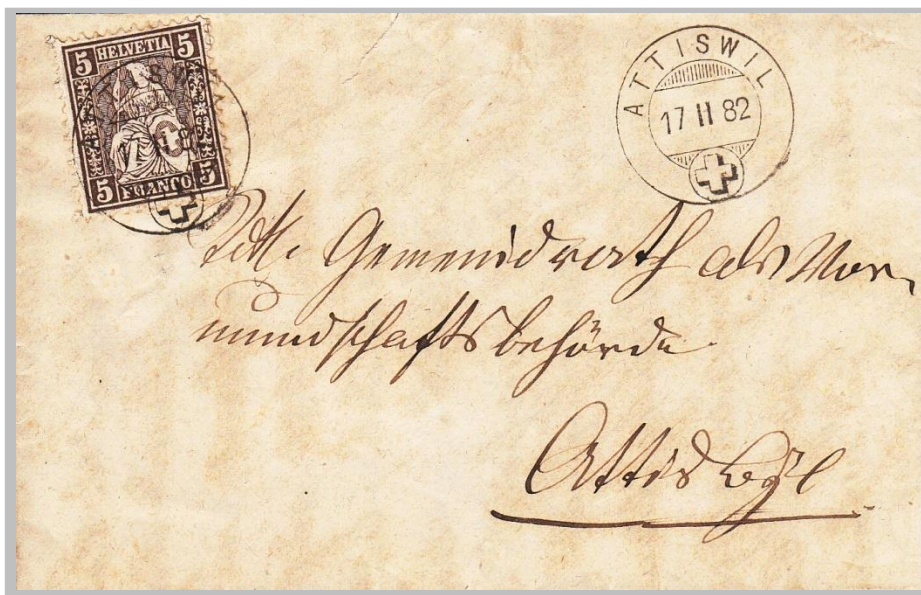 5 HELVETIA 5
ATTISWIL
5 FRANCO 5
ATTISWIL
17 II 82
Gemeindrath als Vor-
mundschaftsbehörde
Attiswyl